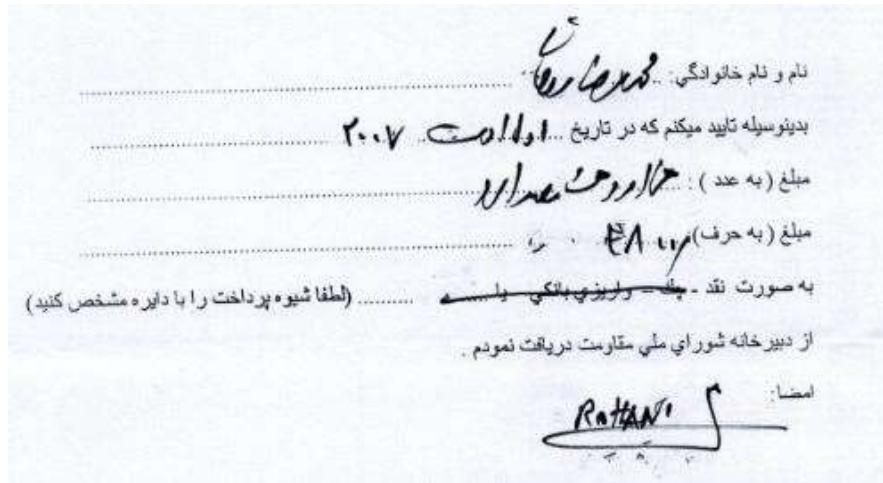 نام و نام خانوادگي: محمدرضا روحانی
بدينوسيله تاييد ميكنم كه در تاريخ اول اوت ۲۰۰۷
مبلغ ( به عدد ) :
مبلغ ( به حرف)
به صورت نقد - چك - واريزي بانكي يا ........ (لطفا شيوه پرداخت را با دايره مشخص كنيد)
از دبيرخانه شوراي ملي مقاومت دريافت نمودم .
امضا:
ROHANI